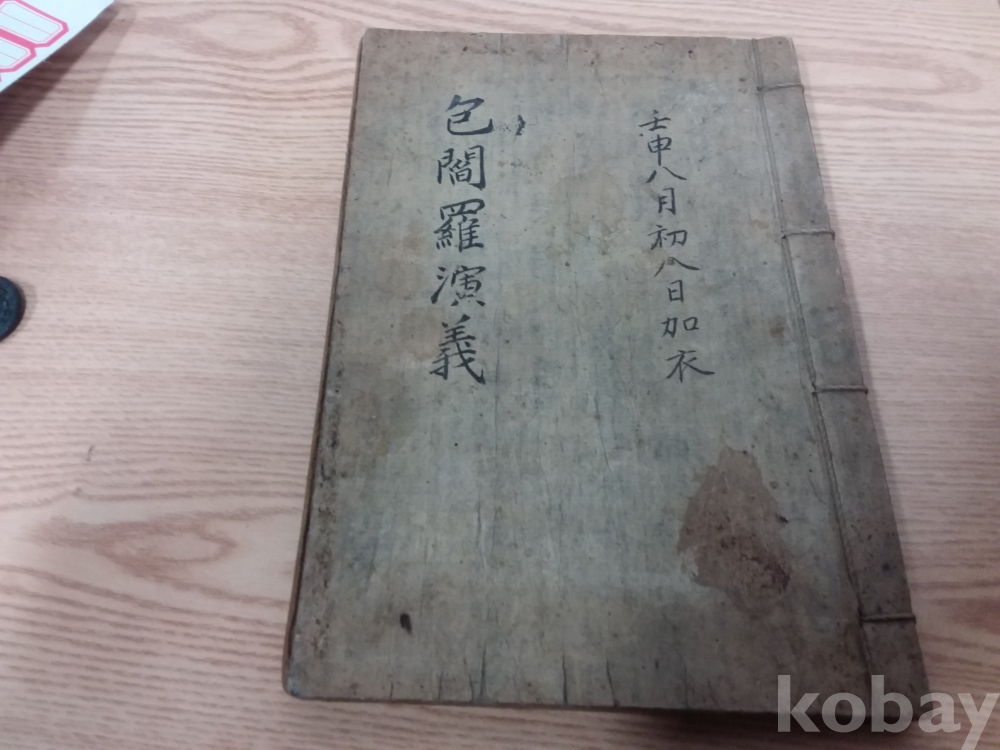 壬申八月初八日加衣
包閻羅演義
kobay